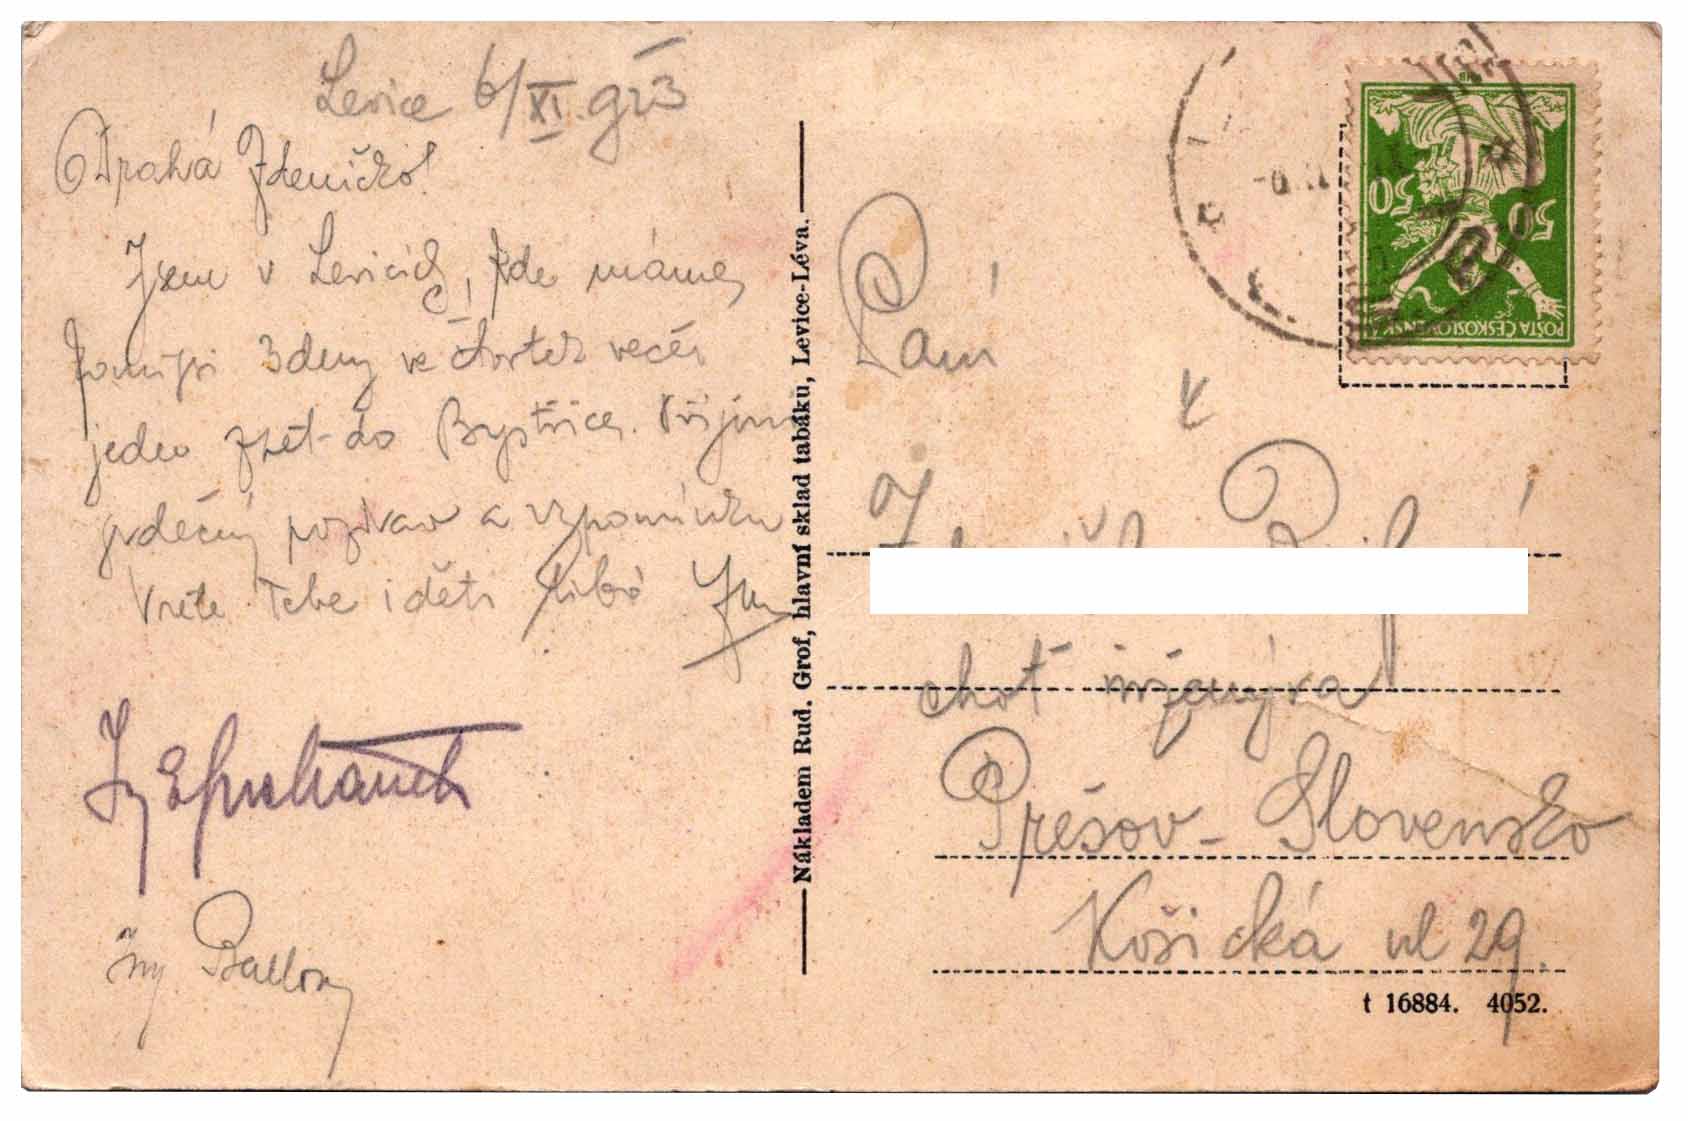 Levice 6/XI. 923
Drahá Zdeničko!
Jsem v Levicích, kde máme
komisi 3 dny ve čtvrtek večer
jedeo zpět do Bystřice. Přijm
srdečný pozdrav a vzpomínku
Vřele Tebe i děti líbá
Ing
Ing
Nákladem Rud. Grof, hlavní sklad tabáku, Levice-Léva.
POŠTA ČESKOSLOVENSKÁ
50 50
Paní
choť inženýra
Préšov - Slovensko
Košická ul 29.
t 16884. 4052.